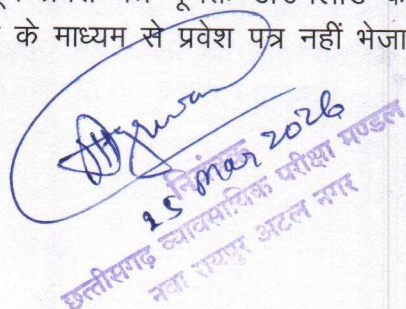 के माध्यम से प्रवेश पत्र नहीं भेजा
Agrawal
25 Mar 2026
नियंत्रक
छत्तीसगढ़ व्यावसायिक परीक्षा मण्डल
नवा रायपुर अटल नगर